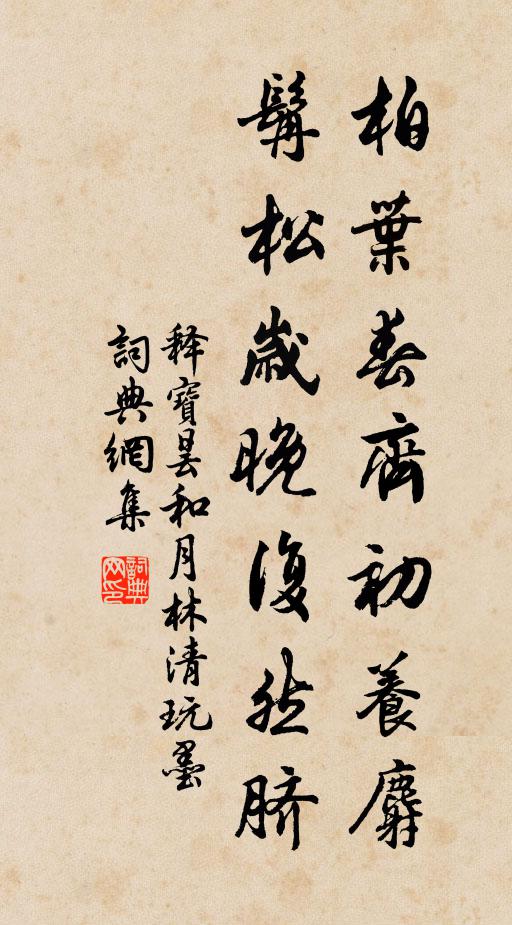 柏葉春齊初養麝
髯松歲晚復然臍
释寶曇和月林清玩墨
詞典網集
詞典網印